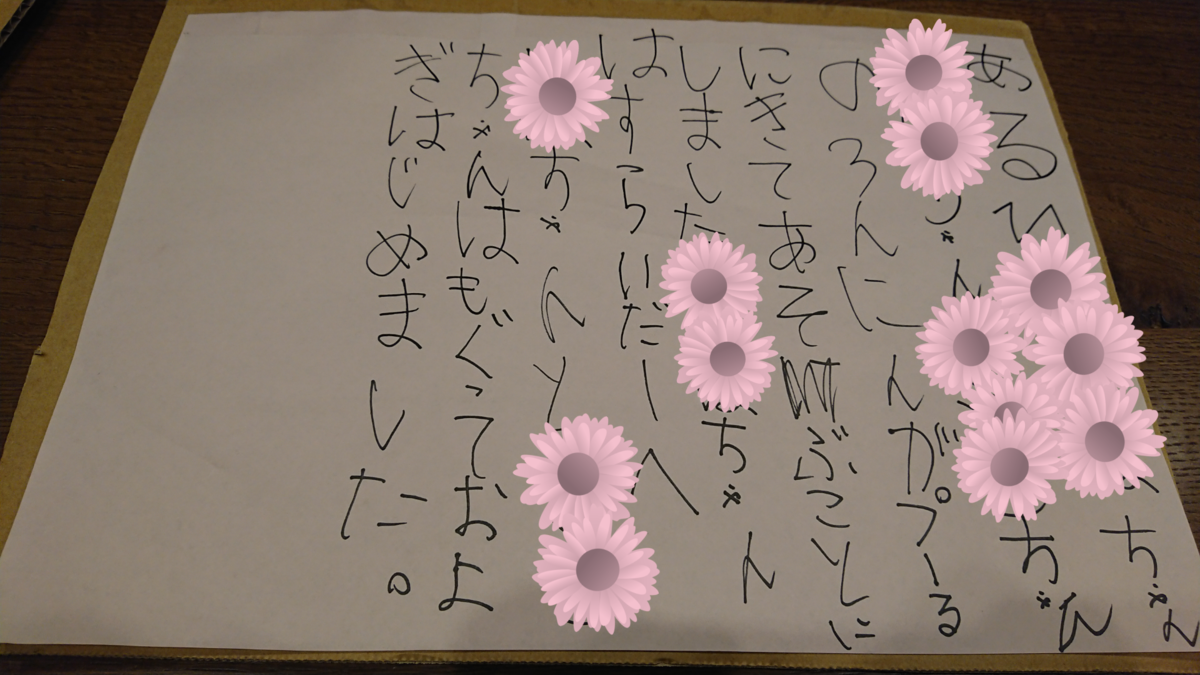 あるひ ちゃん
ゃん ちゃん
のろんにんがプーる
にきてあそぶことに
しました ちゃん
はすらいだーへ
ちゃんと
ちゃんはもぐっておよ
ぎはじめました。